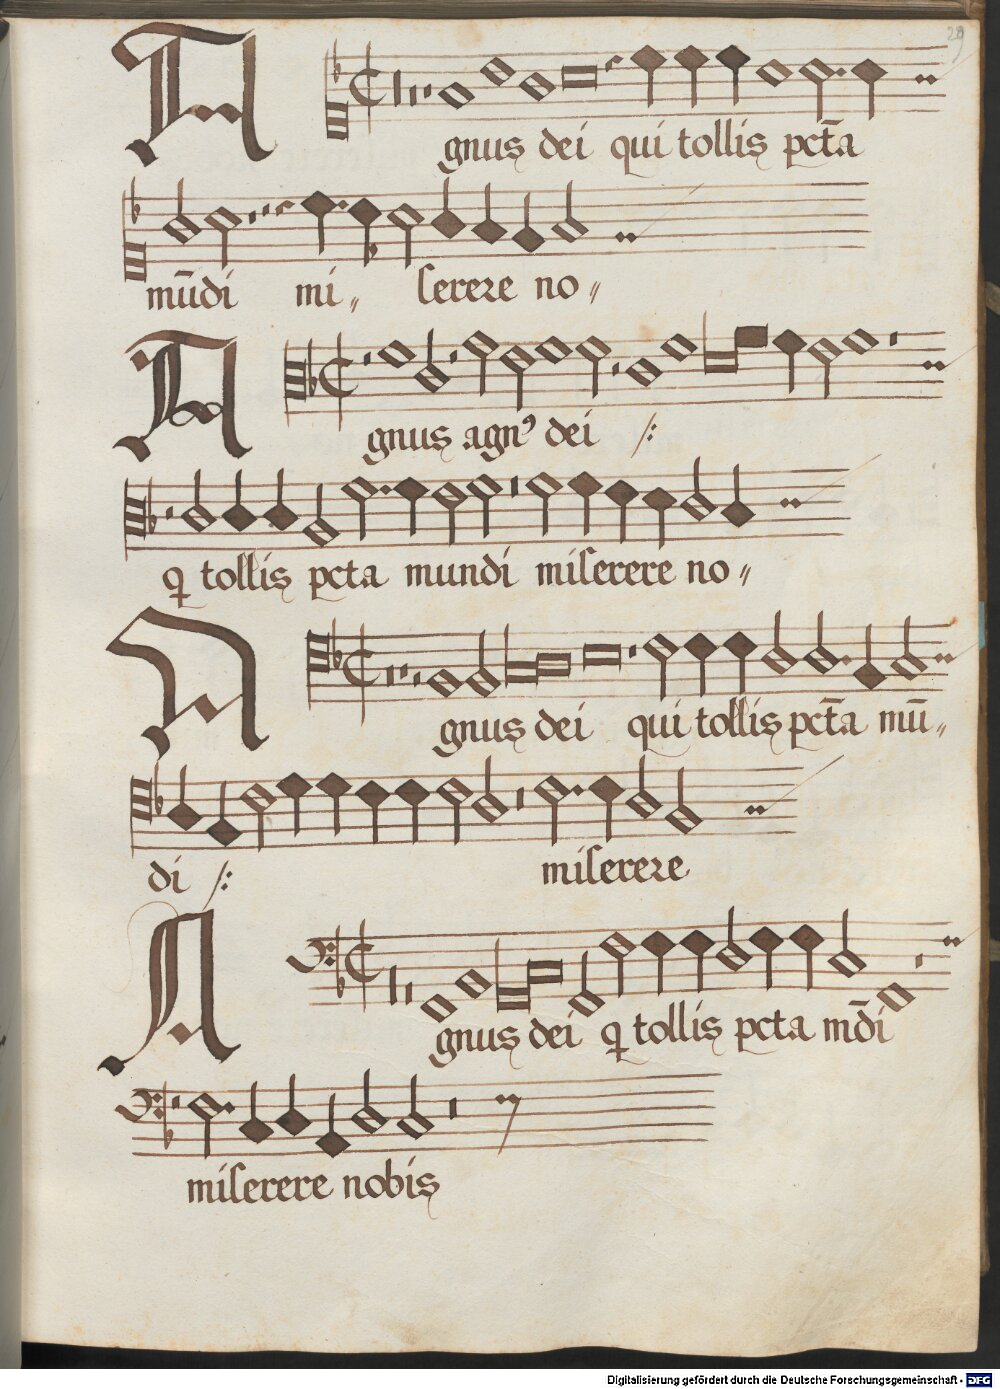 29
Agnus dei qui tollis pct̄a
mūdi mi〃 ſerere no〃
Agnus agnꝰ dei /:
q tollis pcta mundi miſerere no〃
Agnus dei qui tollis pct̄a mū〃
di /: miſerere
Agnus dei q tollis pcta md̄i
miſerere nobis
Digitalisierung gefördert durch die Deutsche Forschungsgemeinschaft - DFG